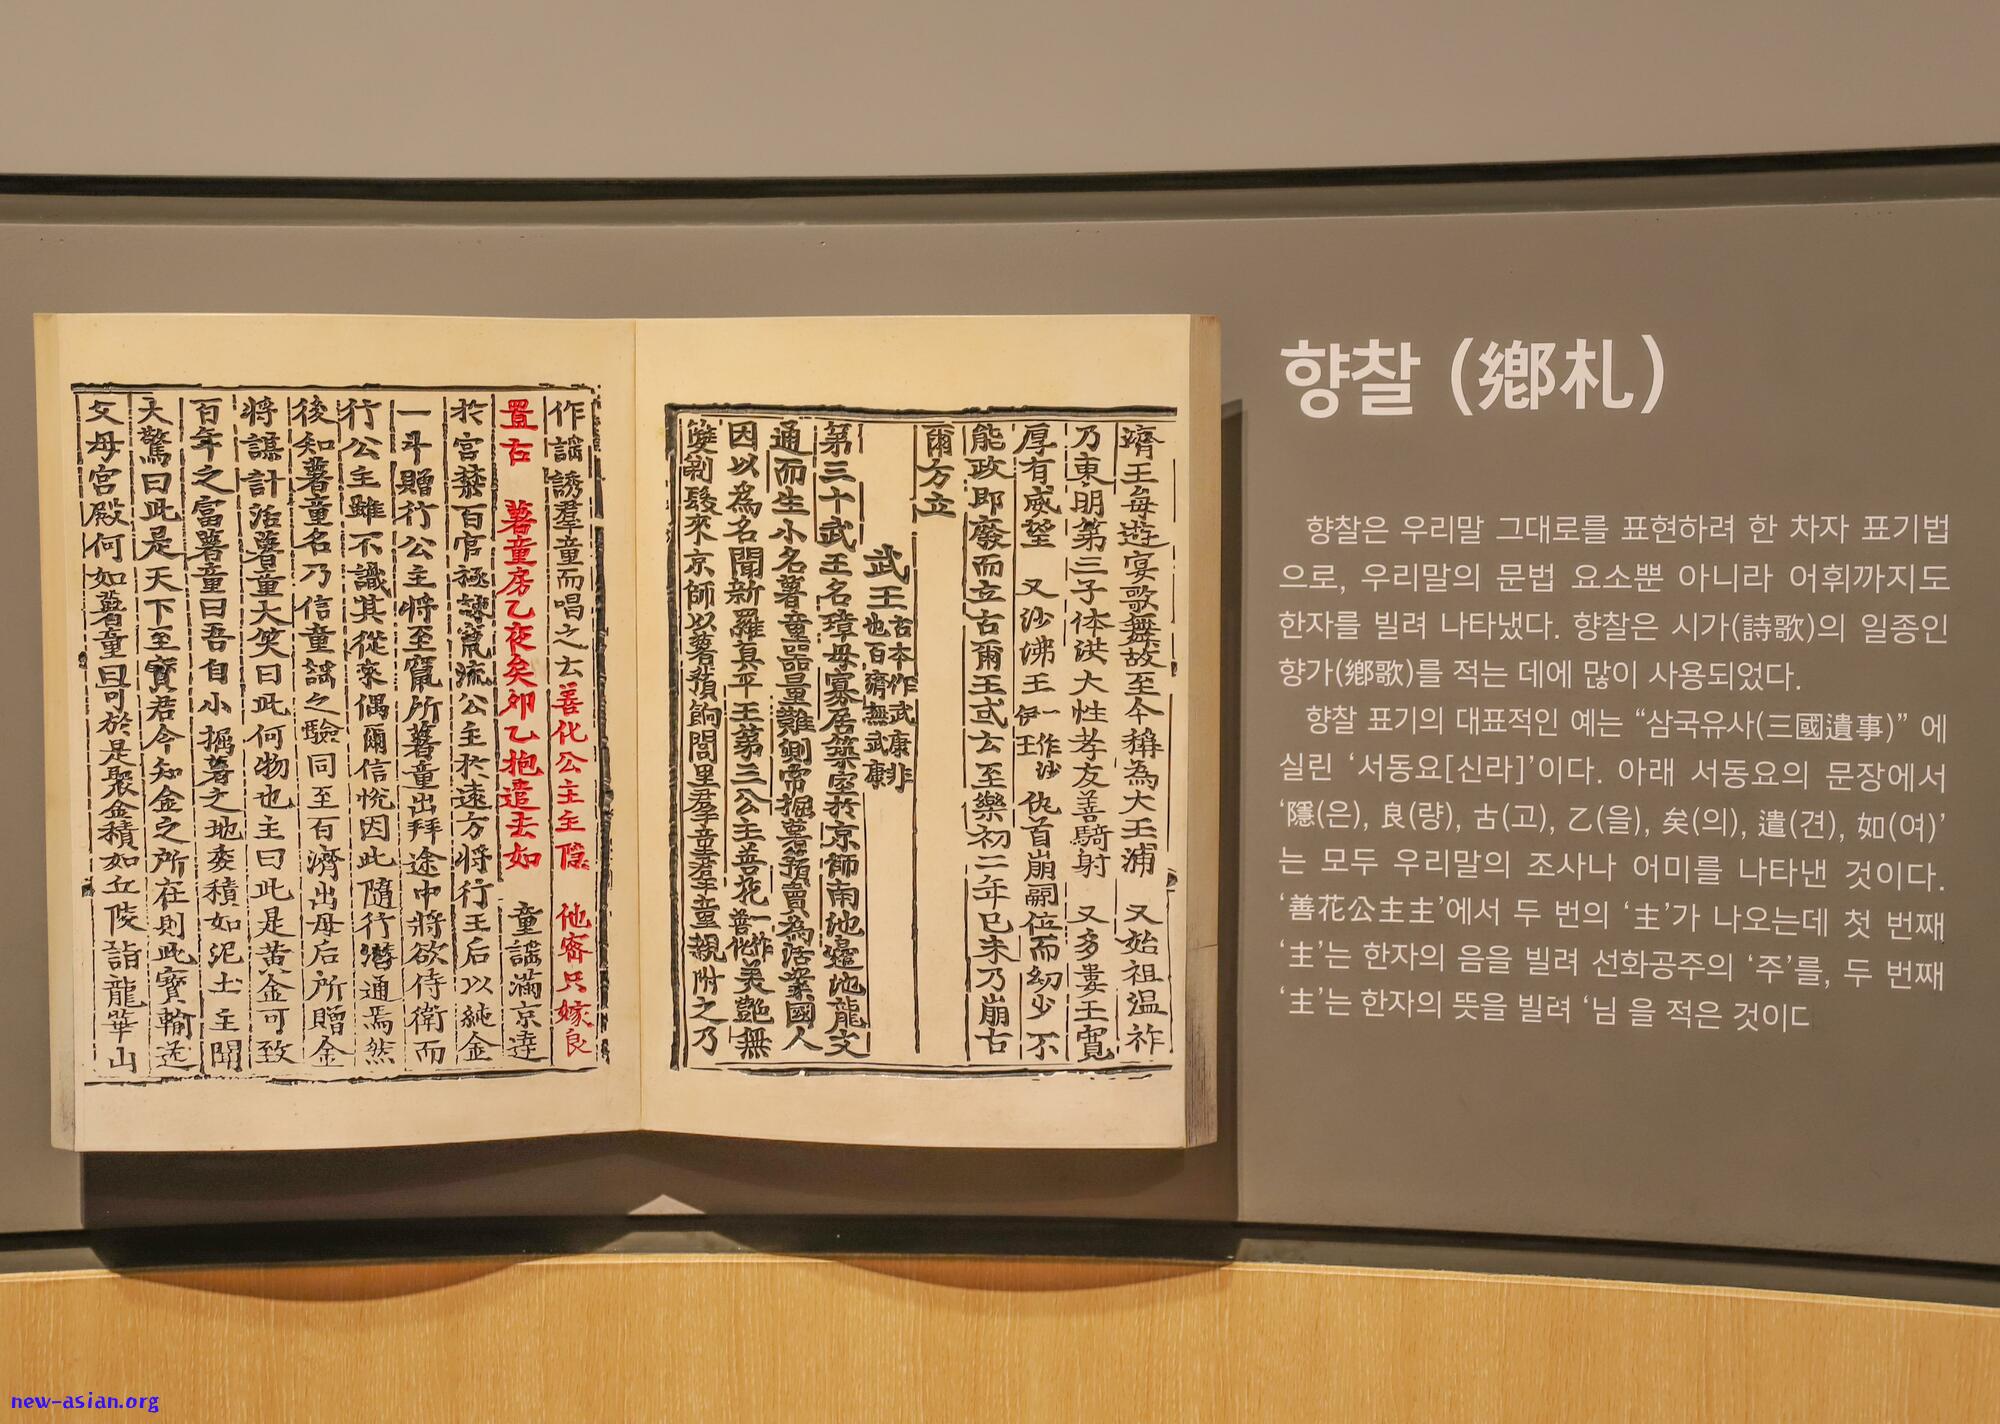 濟王每遊宴歌舞故至今稱為大王浦 又始祖温祚
乃東明第三子体洪大性孝友善騎射 又多婁王寬
厚有威望 又沙沸王一作沙伊王 仇首崩嗣位而幼少不
能政即廢而立古爾王或云至樂初二年己未乃崩古
爾方立
武王古本作武康非也百濟無武康
第三十武王名璋母寡居築室於京師南池邊池龍交
通而生小名薯童器量難測常掘薯蕷賣為活業國人
因以為名聞新羅真平王第三公主善花一作善化美艶無
雙剃髮來京師以薯蕷餉閭里羣童羣童親附之乃
作謡誘羣童而唱之云善化公主主隐 他密只嫁良
置古 薯童房乙夜矣卯乙抱遣去如 童謡滿京達
於宮禁百官極諫竄流公主於遠方將行王后以純金
一斗贈行公主將至竄所薯童出拜途中將欲侍衛而
行公主雖不識其從來偶爾信悅因此隨行潜通焉然
後知薯童名乃信童謡之驗同至百濟出母后所贈金
將謀計活薯童大笑曰此何物也主曰此是黄金可致
百年之富薯童曰吾自小掘薯之地委積如泥土主聞
大驚曰此是天下至寶君今知金之所在則此寶輸送
父母宮殿何如薯童曰可於是聚金積如丘陵詣龍華山
향찰 (鄕札)
향찰은 우리말 그대로를 표현하려 한 차자 표기법
으로, 우리말의 문법 요소뿐 아니라 어휘까지도
한자를 빌려 나타냈다. 향찰은 시가(詩歌)의 일종인
향가(鄕歌)를 적는 데에 많이 사용되었다.
향찰 표기의 대표적인 예는 “삼국유사(三國遺事)” 에
실린 ‘서동요[신라]’이다. 아래 서동요의 문장에서
‘隱(은), 良(량), 古(고), 乙(을), 矣(의), 遣(견), 如(여)’
는 모두 우리말의 조사나 어미를 나타낸 것이다.
‘善花公主主’에서 두 번의 ‘主’가 나오는데 첫 번째
‘主’는 한자의 음을 빌려 선화공주의 ‘주’를, 두 번째
‘主’는 한자의 뜻을 빌려 ‘님 을 적은 것이ㄷ
new-asian.org